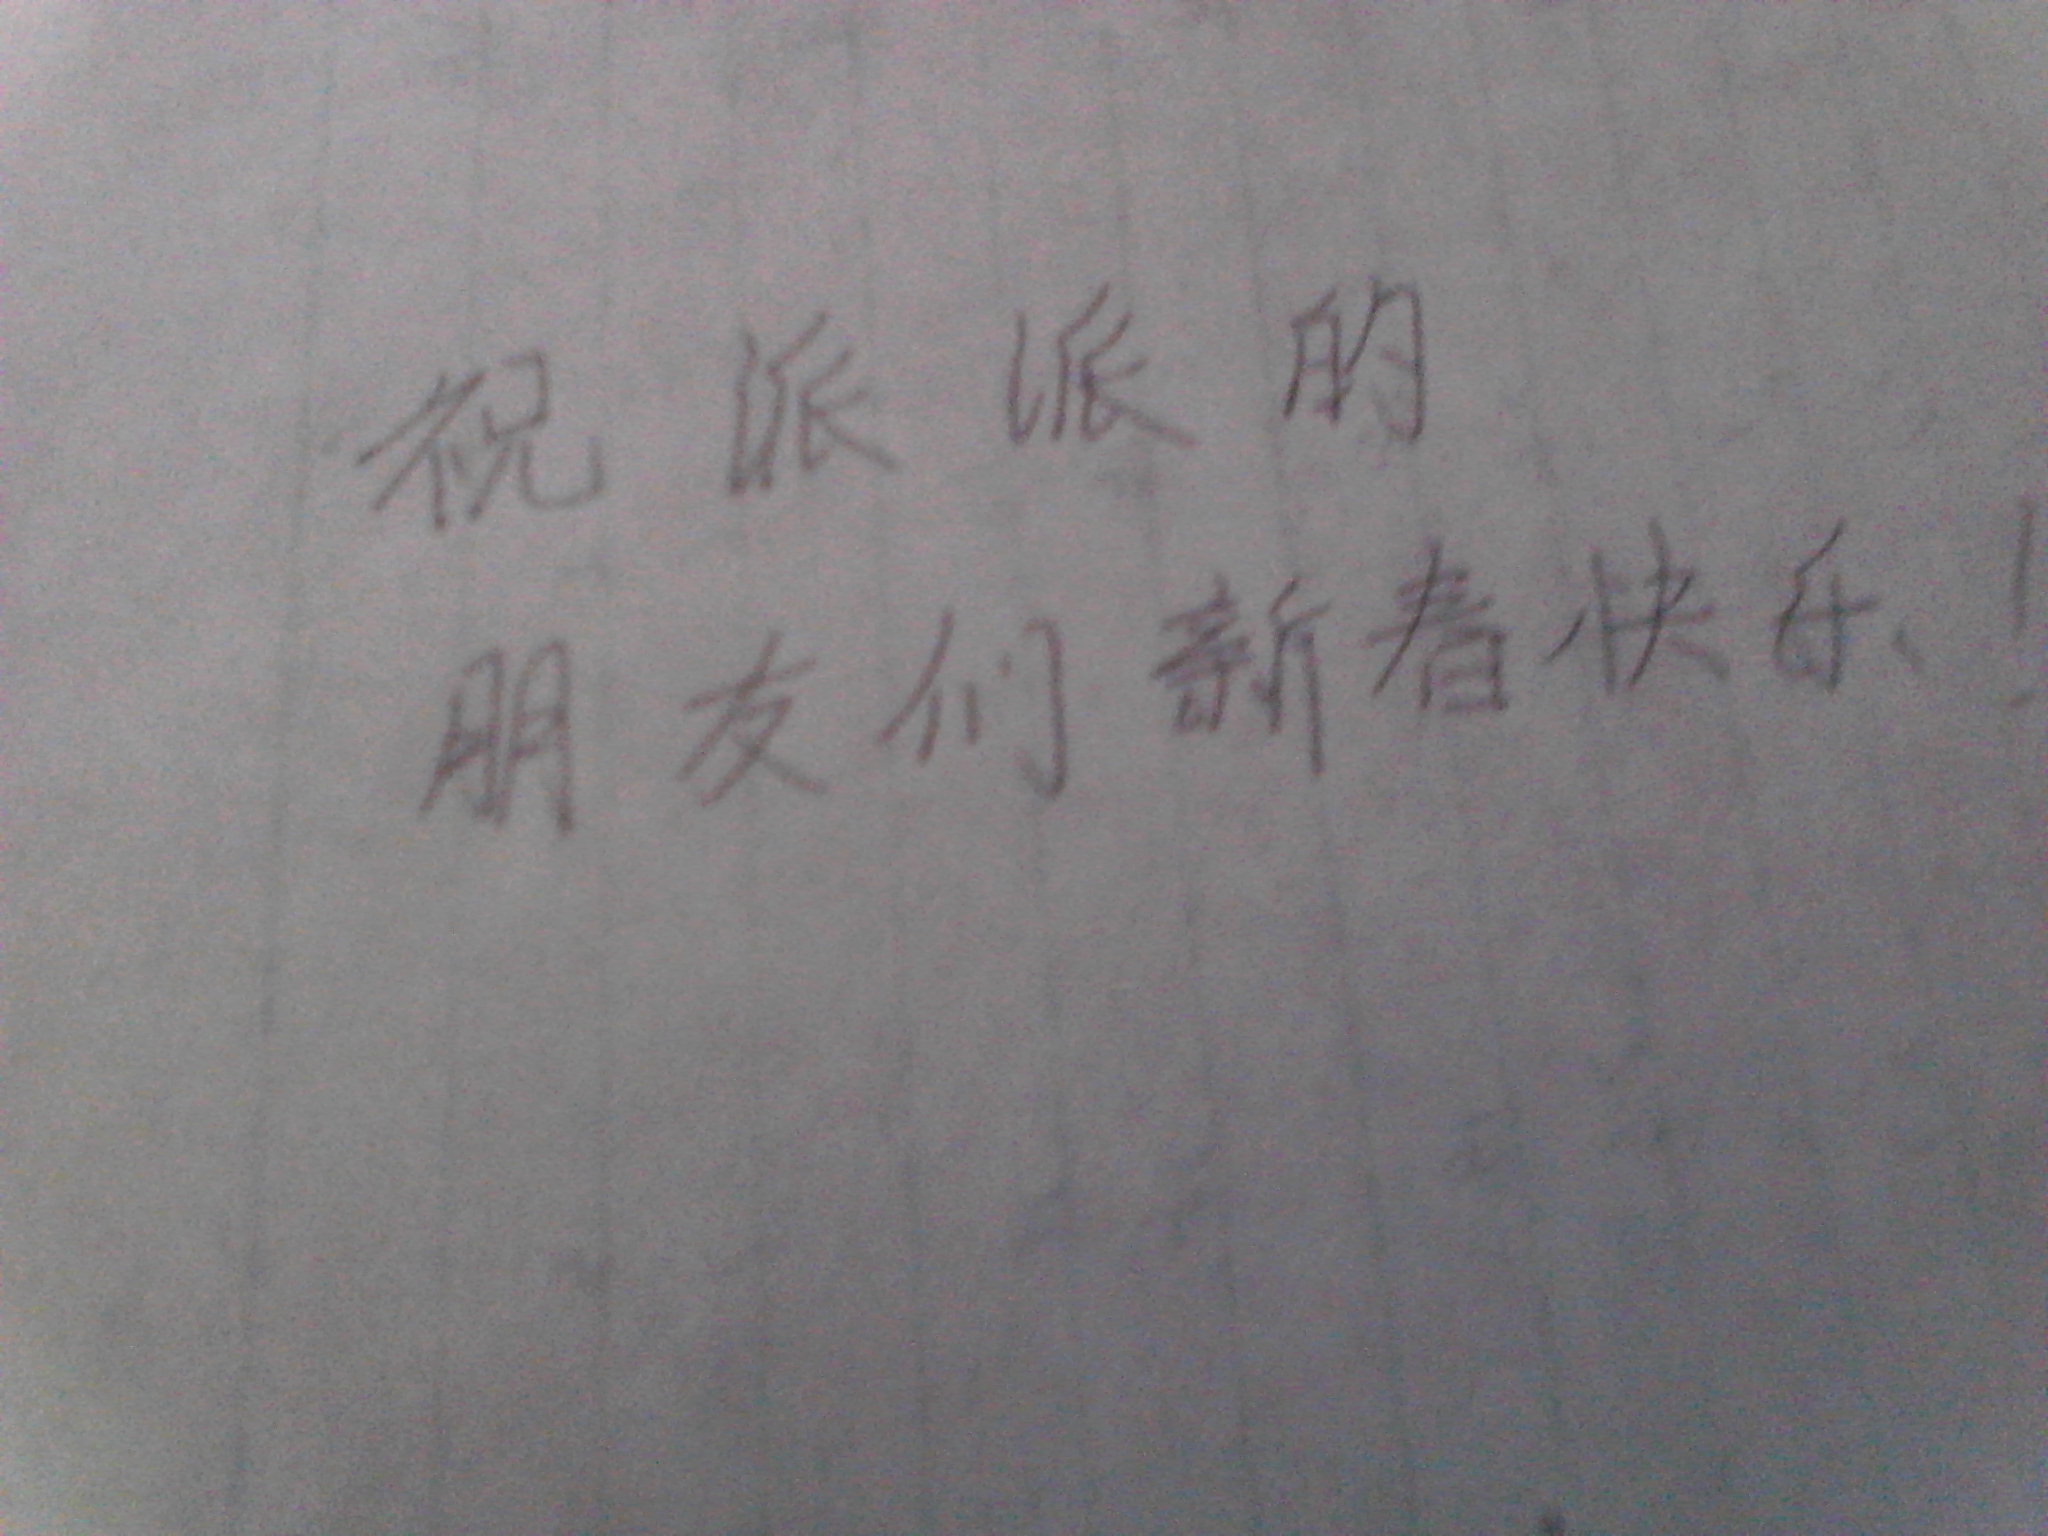 祝派派的
朋友们新春快乐!